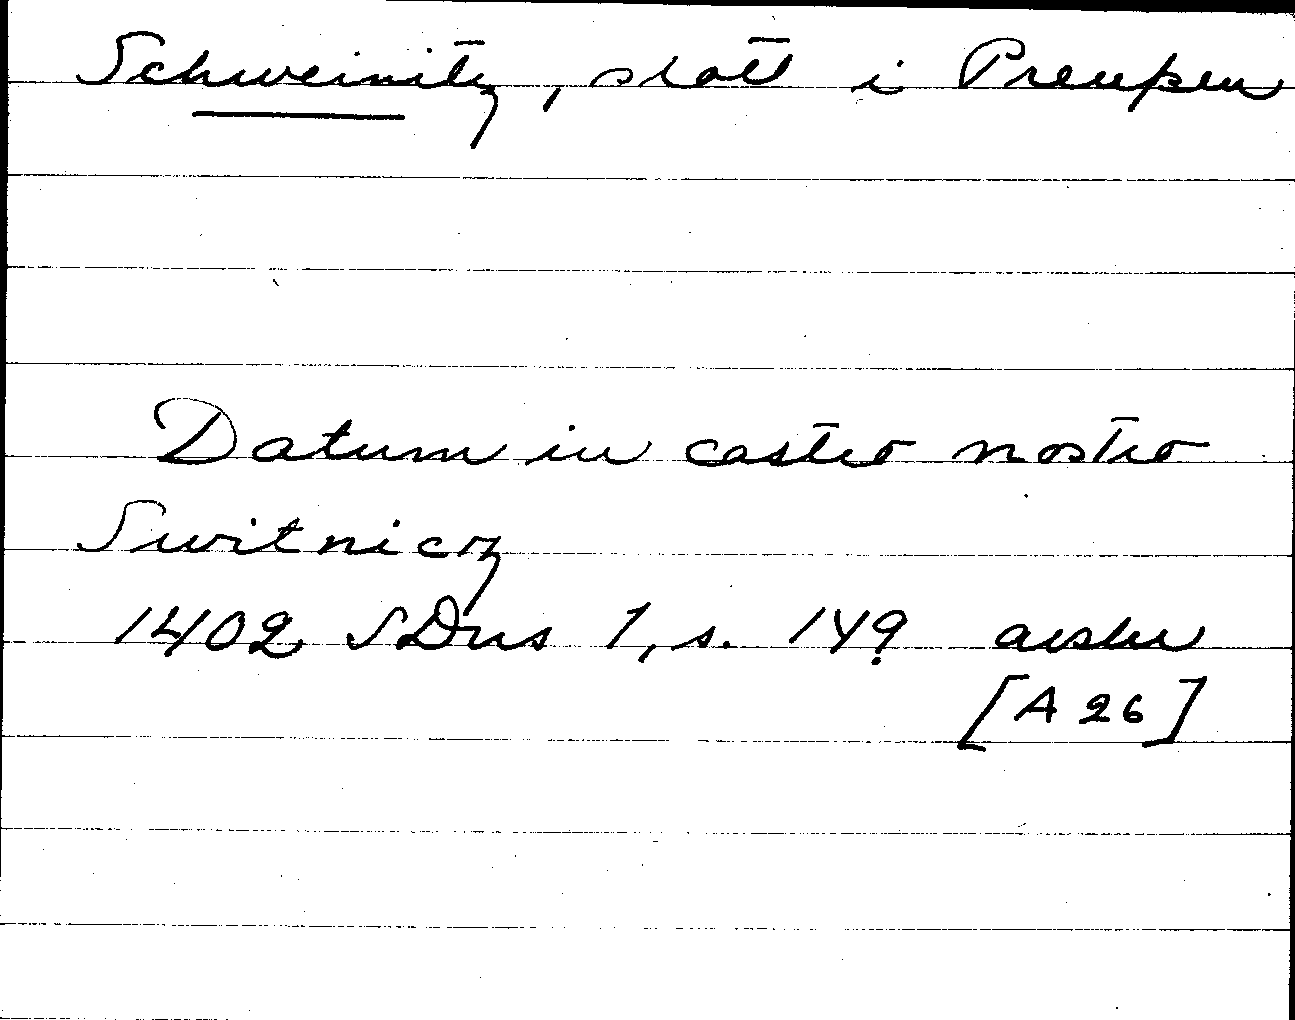 Schweinitz, slott i Preußen
Datum in castro nostro
Switnicz
1402 SDns 1, s. 149 avskr
[A 26]